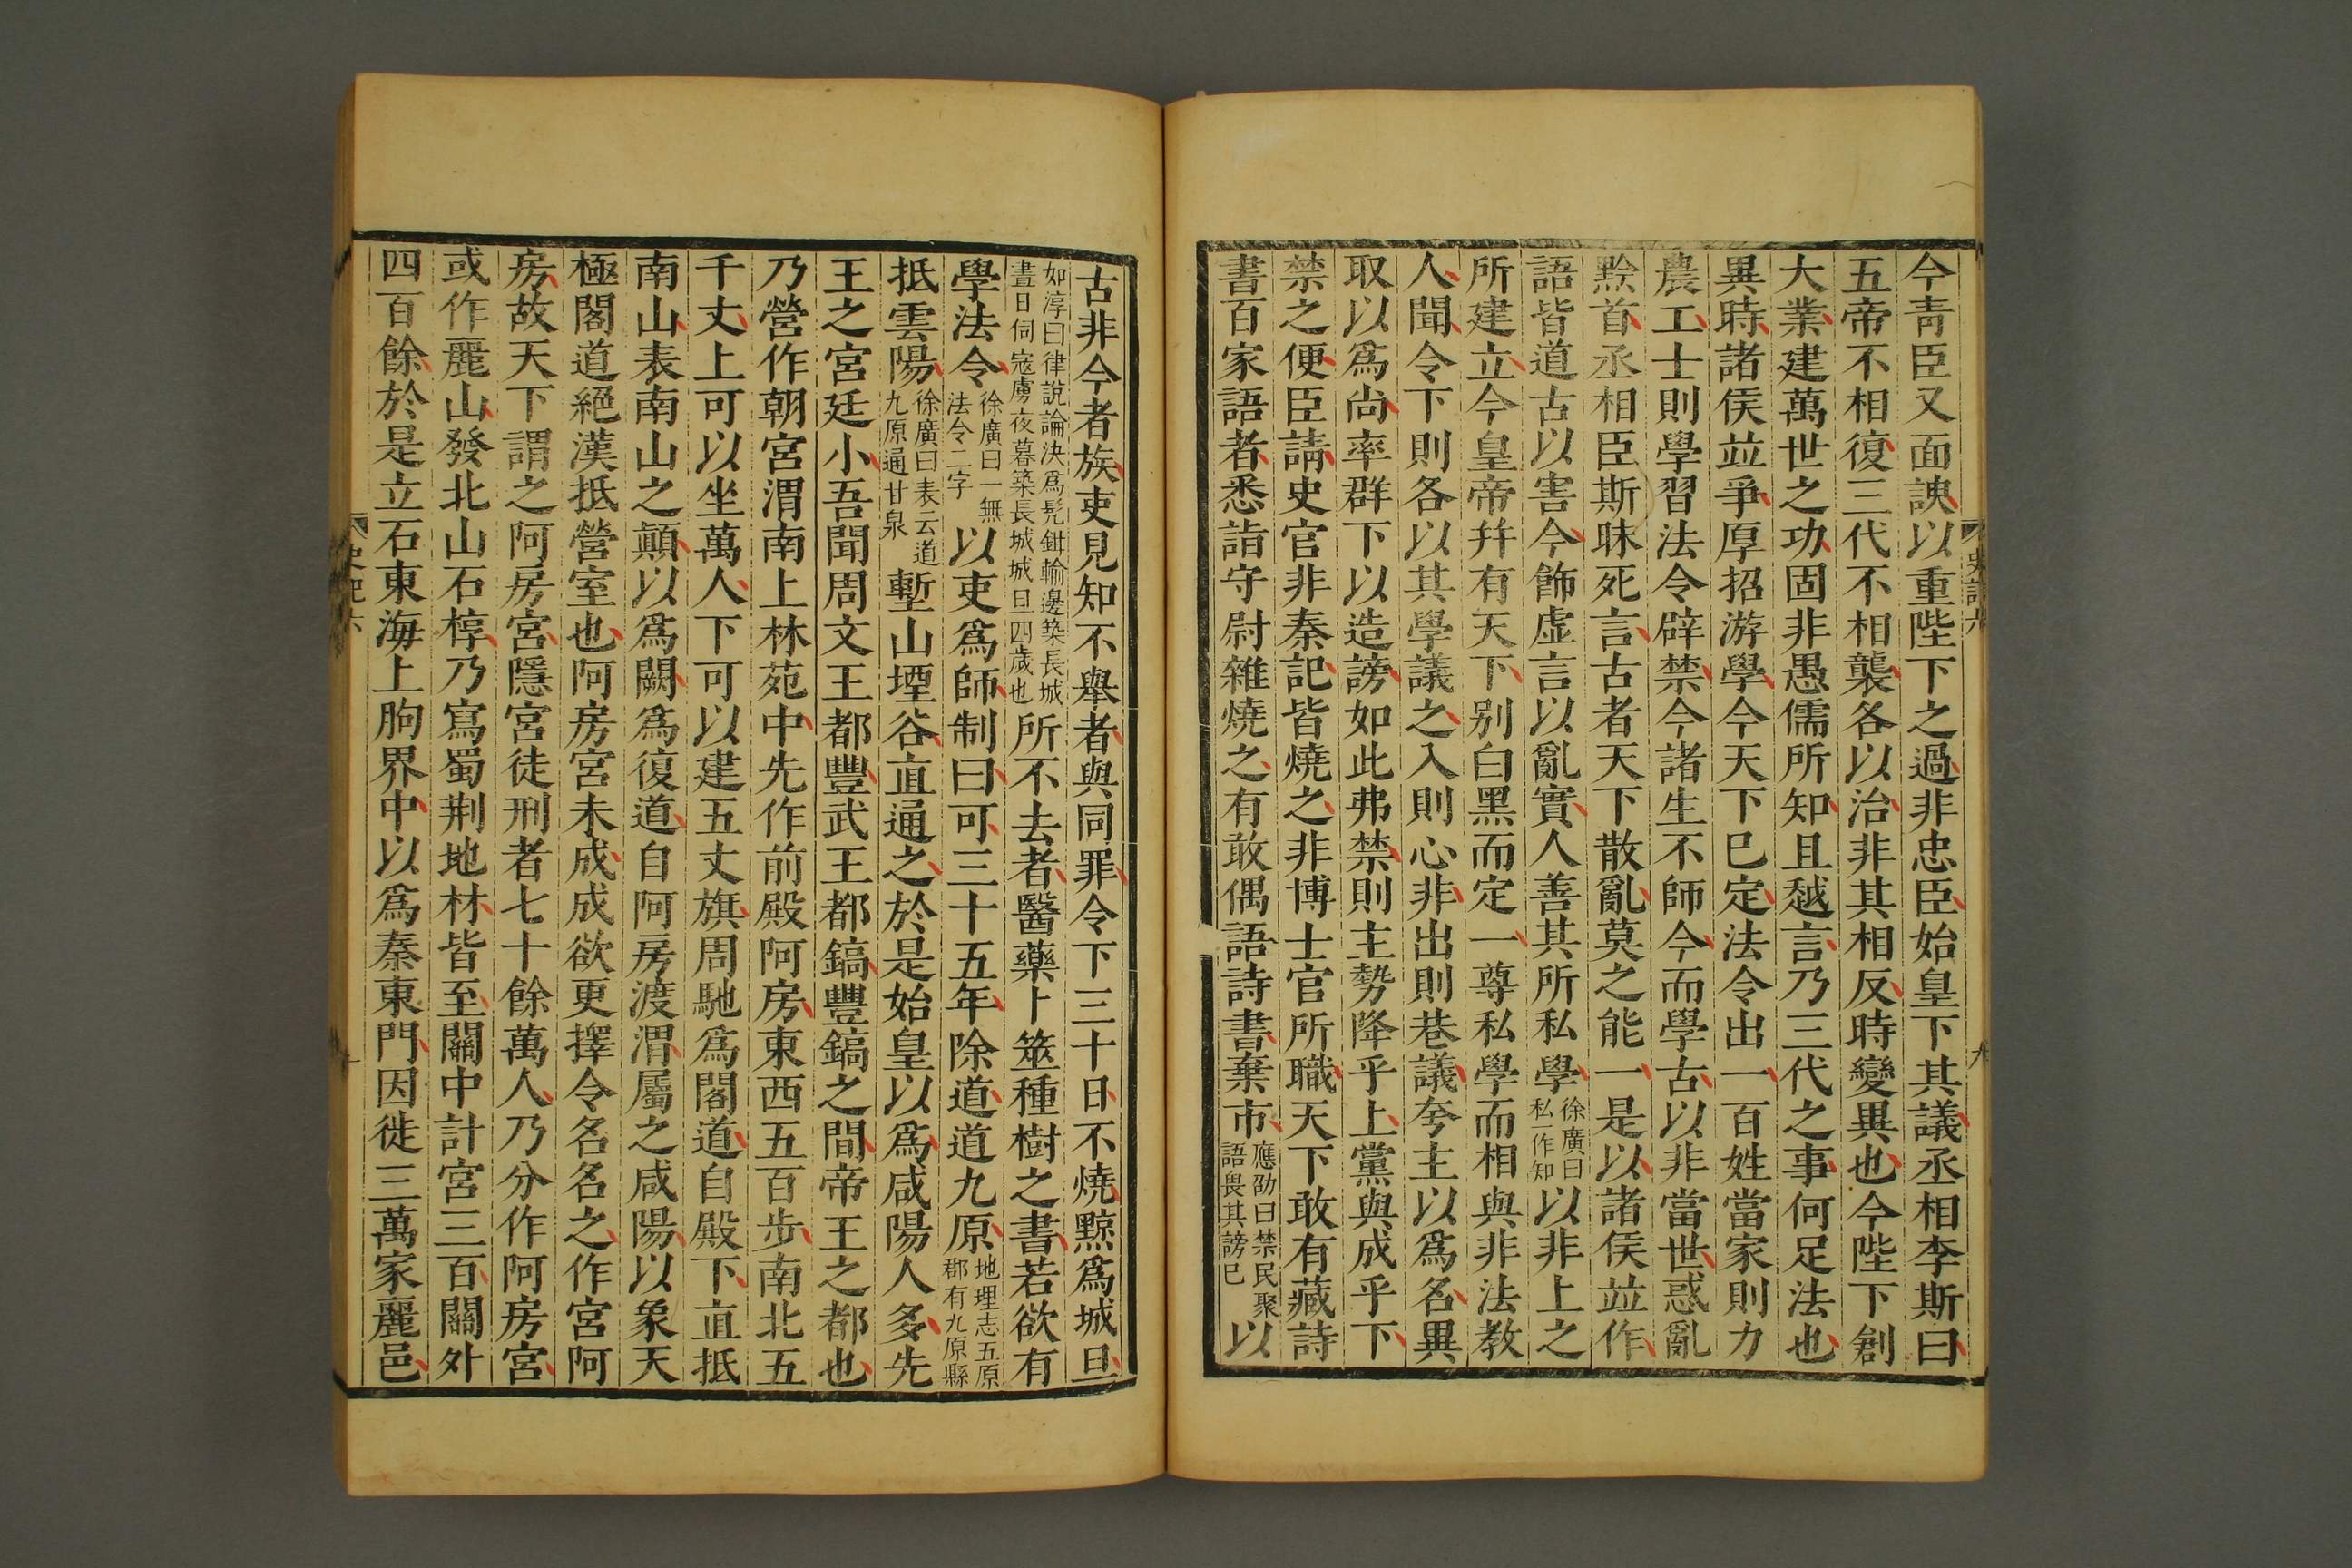 今靑臣又面諛以重陛下之過非忠臣始皇下其議丞相李斯曰
五帝不相復三代不相襲各以治非其相反時變異也今陛下創
大業建萬世之功固非愚儒所知且越言乃三代之事何足法也
異時諸侯並爭厚招游學今天下已定法令出一百姓當家則力
農工士則學習法令辟禁今諸生不師今而學古以非當世惑亂
黔首丞相臣斯昧死言古者天下散亂莫之能一是以諸侯並作
語皆道古以害今飾虛言以亂實人善其所私學徐廣曰私一作知以非上之
所建立今皇帝幷有天下別白黑而定一尊私學而相與非法教
人聞令下則各以其學議之入則心非出則巷議夸主以爲名異
取以爲尚率群下以造謗如此弗禁則主勢降乎上黨與成乎下
禁之便臣請史官非秦記皆燒之非博士官所職天下敢有藏詩
書百家語者悉詣守尉雜燒之有敢偶語詩書棄市應劭曰禁民聚語畏其謗已以
史記六
九
古非今者族吏見知不舉者與同罪令下三十日不燒黥爲城旦
如淳曰律說論決爲髡鉗輸邊築長城晝日伺寇虜夜暮築長城城旦四歲也所不去者醫藥卜筮種樹之書若欲有
學法令徐廣曰一無法令二字以吏爲師制曰可三十五年除道道九原地理志五原郡有九原縣
抵雲陽徐廣曰表云道九原通甘泉塹山堙谷直通之於是始皇以爲咸陽人多先
王之宮廷小吾聞周文王都豐武王都鎬豐鎬之間帝王之都也
乃營作朝宮渭南上林苑中先作前殿阿房東西五百步南北五
千丈上可以坐萬人下可以建五丈旗周馳爲閣道自殿下直抵
南山表南山之顚以爲闕爲復道自阿房渡渭屬之咸陽以象天
極閣道絕漢抵營室也阿房宮未成成欲更擇令名名之作宮阿
房故天下謂之阿房宮隱宮徒刑者七十餘萬人乃分作阿房宮
或作麗山發北山石椁乃寫蜀荆地材皆至關中計宮三百關外
四百餘於是立石東海上朐界中以爲秦東門因徙三萬家麗邑
史記六